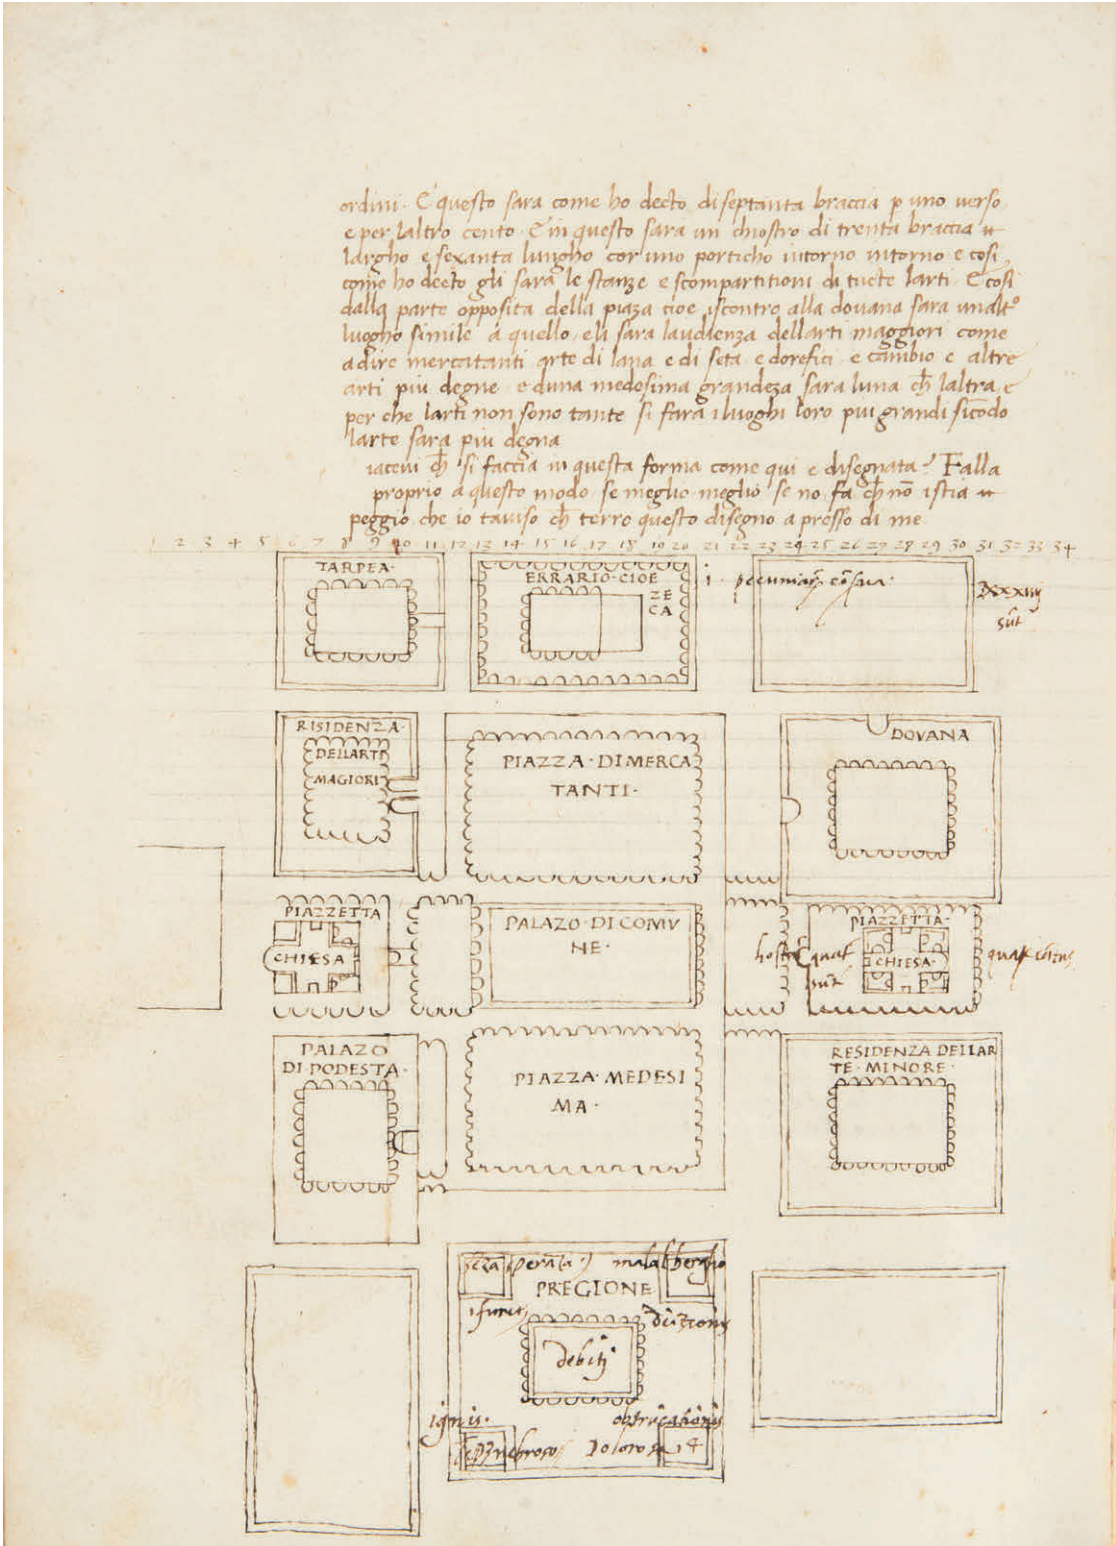 ordini · E questo sara come ho decto di septanta braccia p uno verso
e per laltro cento · E in questo sara un chiostro di trenta braccia
largho e sexanta lungho con uno porticho intorno intorno e cosi
come ho decto gli sara le stanze e scompartitioni di tucte larti · E cosi
dalla parte opposita della piaza cioe iscontro alla dovana sara unaltº
luogho simile a quello e li sara laudienza dellarti maggiori come
a dire mercatanti arte di lana e di seta e dorefici e cambio e altre
arti piu degne e duna medesima grandeza sara luna ch̄ laltra e
per che larti non sono tante si fara i luoghi loro piu grandi secōdo
larte sara piu degna
iacevi ch̄ si faccia in questa forma come qui e disegnata? Falla
proprio a questo modo se meglio meglio se no fa ch̄ nō istia
peggio che io taviso ch̄ terro questo disegno apresso di me
1 2 3 4 5 6 7 8 9 10 11 12 13 14 15 16 17 18 19 20 21 22 23 24 25 26 27 28 29 30 31 32 33 34
TARPEA·
ERRARIO·CIOE
ZE
CA
RISIDENZA·
DELLARTI
MAGIORI
PIAZZA·DIMERCA
TANTI·
DOVANA
PIAZZETTA
CHIESA
PALAZO·DI COMV
NE·
PIAZZETTA·
CHIESA·
PALAZO
DI·PODESTA·
PIAZZA·MEDESI
MA·
RESIDENZA DELLAR
TE·MINORE·
PREGIONE
debitj
ignis·